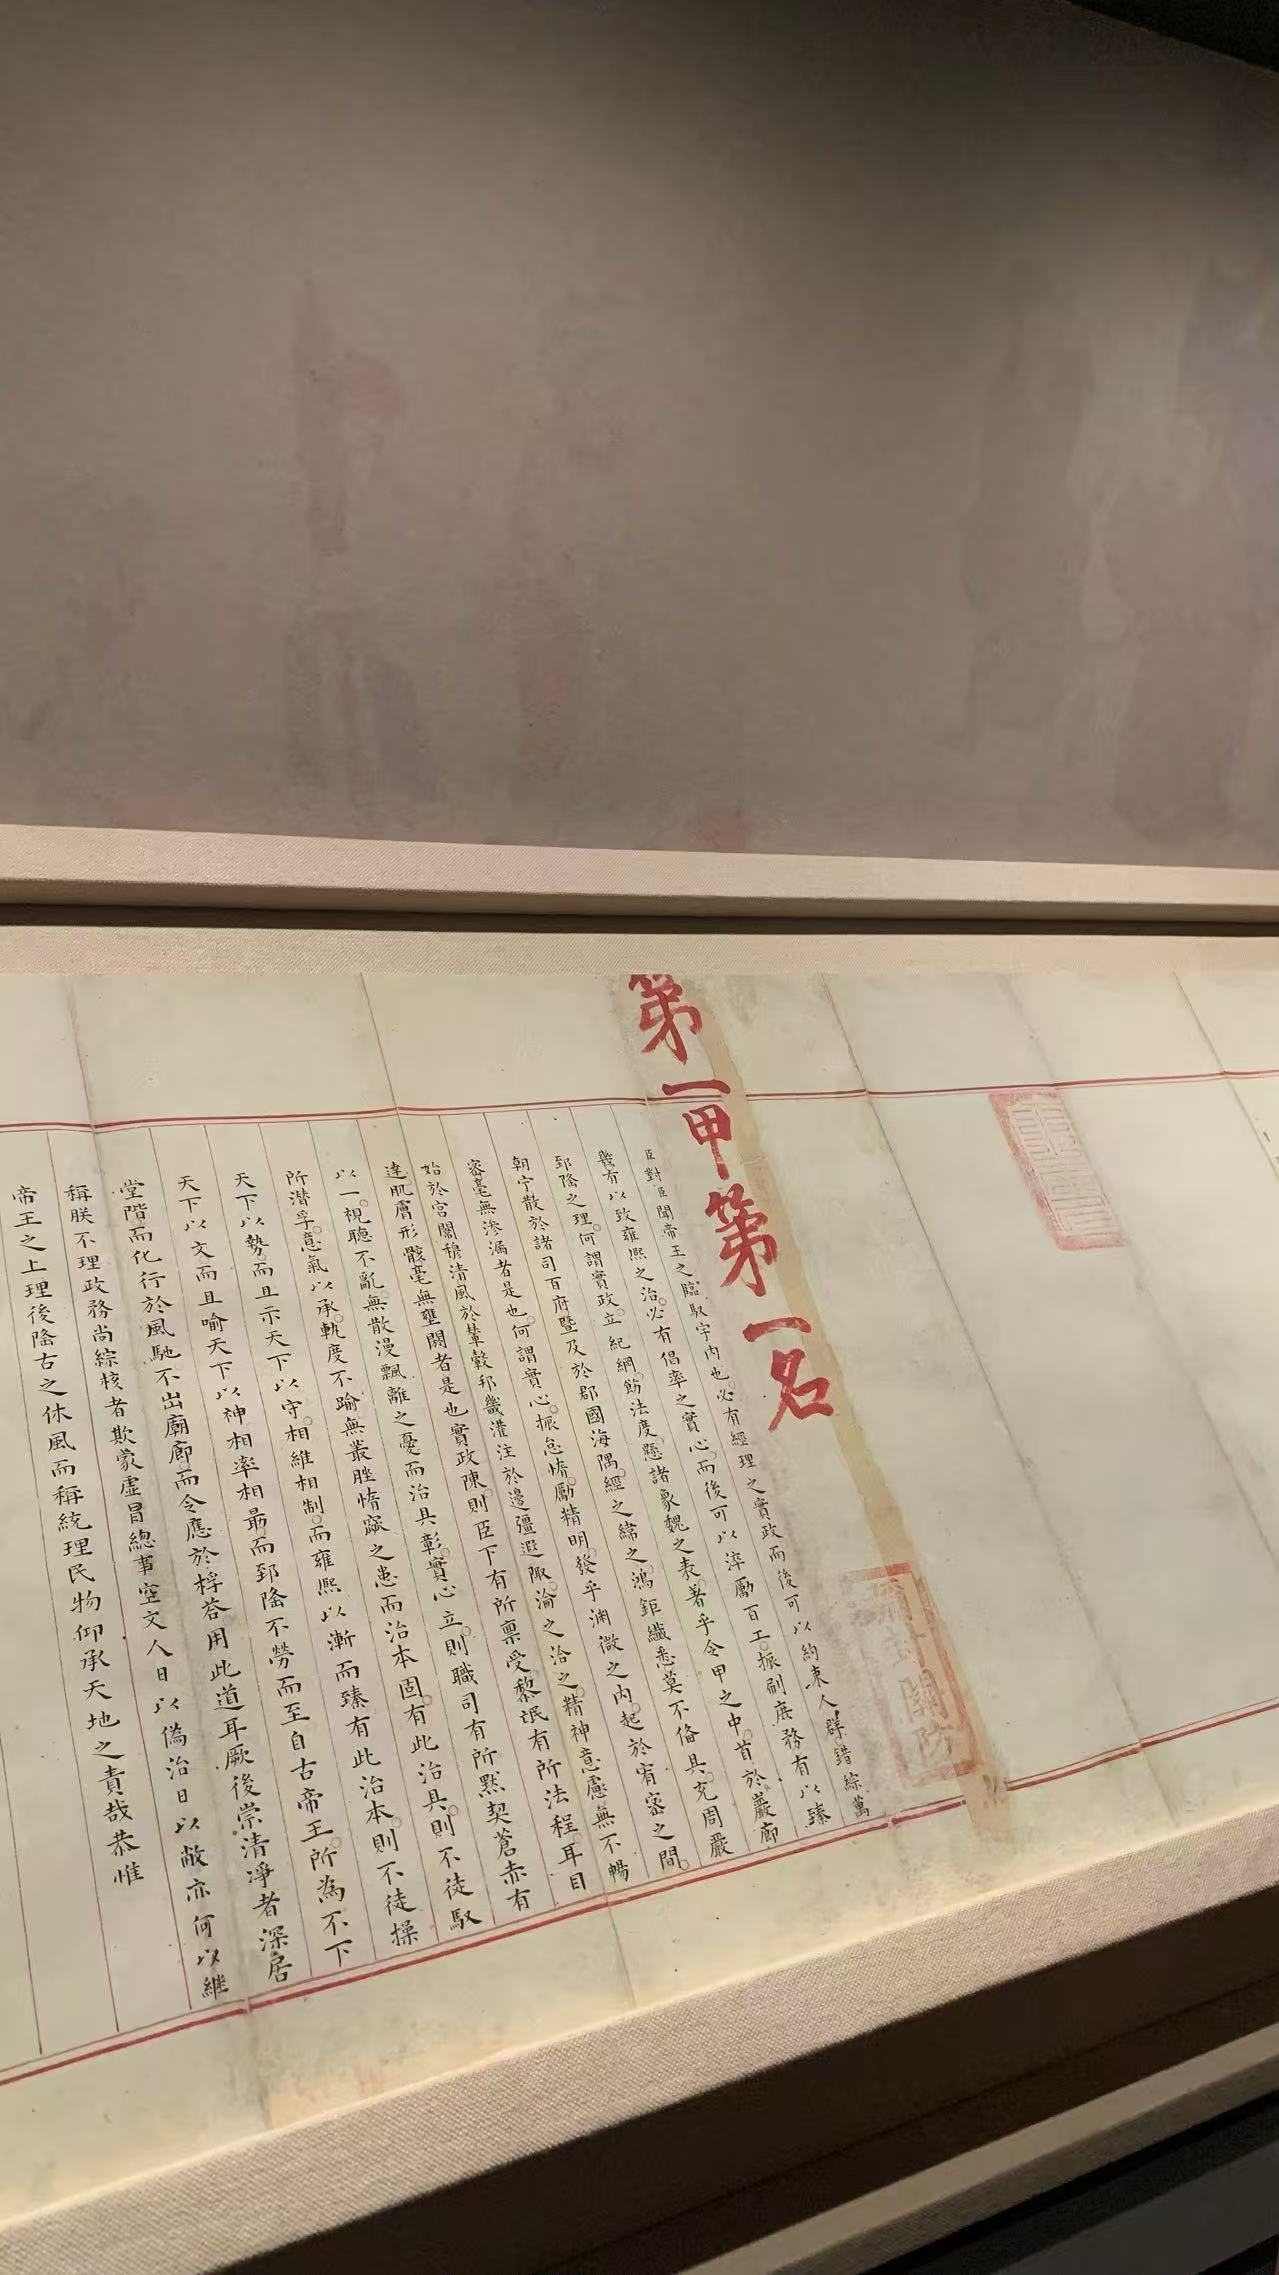 第一甲第一名
臣對臣聞帝王之臨馭宇內也必有經理之實政而後可以約束人群錯綜萬
幾有以致雍熙之治必有倡率之實心而後可以淬勵百工振刷庶務有以臻
郅隆之理何謂實政立紀綱飭法度懸諸象魏之表著乎令甲之中首於巖廊
朝宁散於諸司百府暨及於郡國海隅經之緯之鴻鉅纖悉莫不備具充周嚴
密毫無滲漏者是也何謂實心振怠惰勵精明發乎淵微之內起於宥密之間
始於宮闈穆清風於輦轂邦畿灌注於邊疆遐陬淪之洽之精神意慮無不暢
達肌膚形骸毫無壅閼者是也實政陳則臣下有所稟受黎氓有所法程耳目
以一視聽不亂無散漫飄離之憂而治具彰實心立則職司有所默契蒼赤有
所潛孚意氣以承軌度不踰無叢脞惰窳之患而治本固有此治具則不徒馭
天下以勢而且示天下以守相維相制而雍熙以漸而臻有此治本則不徒操
天下以文而且喻天下以神相率相最而郅隆不勞而至自古帝王所為不下
堂階而化行於風馳不出廟廊而令應於桴荅用此道耳厥後崇清凈者深居
稱朕不理政務尚綜核者欺蒙虛冒總事空文人日以偽治日以敝亦何以繼
帝王之上理後隆古之休風而稱統理民物仰承天地之責哉恭惟
彌封關防